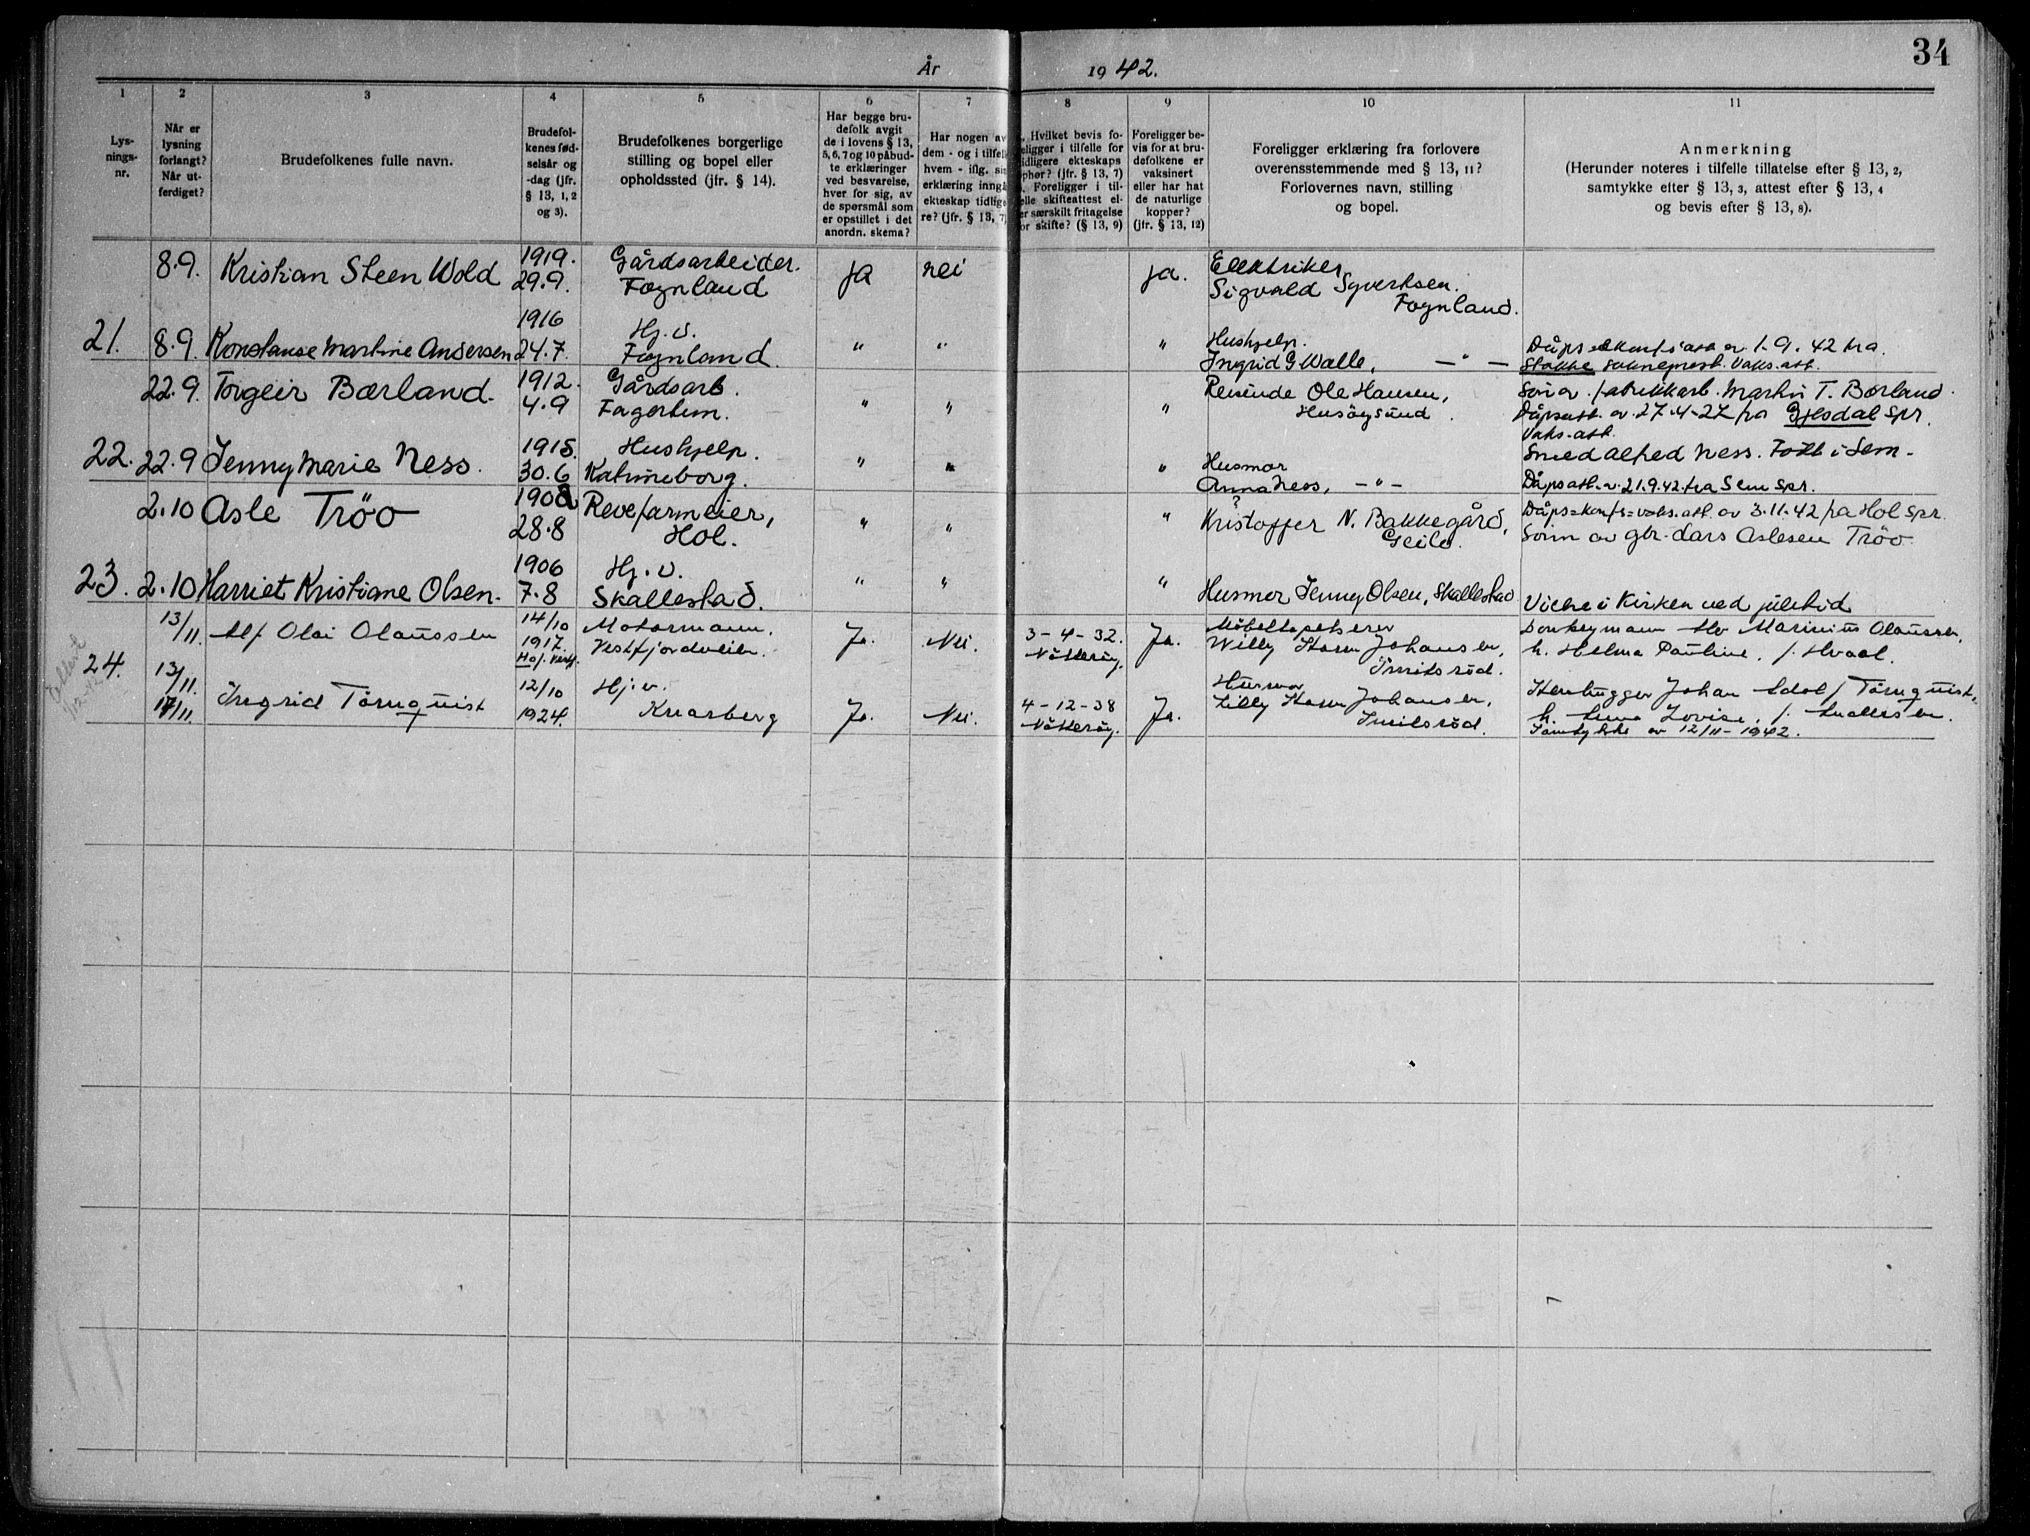 34
År 1942.
1 2 3 4 5 6 7 8 9 10 11
Lys-
nings-
nr.
Når er
lysning
forlangt?
Når ut-
ferdiget?
Brudefolkenes fulle navn.
Brudefol-
kenes fød-
selsår og
-dag (jfr.
§ 13, 1, 2
og 3).
Brudefolkenes borgerlige
stilling og bopel eller
opholdssted (jfr. § 14).
Har begge bru-
defolk avgit
de i lovens § 13,
5, 6, 7 og 10 påbud-
te erklæringer
ved besvarelse,
hver for sig, av
de spørsmål som
er opstillet i det
anordn. skema?
Har nogen av
dem - og i tilfelle
hvem - iflg. sin
erklæring inngå
ekteskap tidlige
re? (jfr. § 13, 7)
Hvilket bevis fo-
religger i tilfelle for
tidligere ekteskaps
ophør? (jfr. § 13, 7)
Foreligger i til-
felle skifteattest el-
ler særskilt fritagelse
for skifte? (§ 13, 9)
Foreligger be-
vis for at bru-
defolkene er
vaksinert
eller har hat
de naturlige
kopper?
(jfr. § 13, 12)
Foreligger erklæring fra forlovere
overensstemmende med § 13, 11?
Forlovernes navn, stilling
og bopel.
Anmerkning
(Herunder noteres i tilfelle tillatelse efter § 13, 2,
samtykke efter § 13, 3, attest efter § 13, 4
og bevis efter § 13, 8).
8.9. Kristian Steen Wold 1919. 29.9. Gårdsarbeider. Fognland ja nei ja. Elektriker
Sigvald Syvertsen.
Fognland.
21. 8.9. Konstanse Martine Andersen 1916 24.7. Hj.v. Fognland. " " " Hushjelp.
Ingrid G Walle, — " —
Dåps - konfs att av 1.9.42 fra
Stokke sokneprest. Vaks.att.
22.9. Torgeir Bærland. 1912. 4.9 Gårdsarb. Fagerheim. " " " Reisende Ole Hansen,
Husøysund.
Sön av fabrikkarb. Martin T. Bærland.
Dåpsatt. av 27.4-27 fra Gjesdal spr.
Vaks.att.
22. 22.9 Jenny Marie Ness. 1915. 30.6 Hushjelp. Katrineborg. " " " Husmor
Anna Ness, - " -
Smed Alfred Ness. Født i Sem -
Dåpsatt. av 21.9.42 fra Sem spr.
2.10 Asle Tröo 28.8 Revefarmeier, Hol. " " " Kristoffer N. Bakkegård,
Geilo.
Dåps=konfs=vaks.att. av 3.11.42 fra Hol spr.
Sönn av gbr. Lars Aslesen Tröo
23. 2.10 Harriet Kristiane Olsen. 1906 7.8 Hj.v. Skallestad. " " " Husmor Jenny Olsen, Skallestad
Vie i Kirken ved juletid
13/11. Alf Olai Olaussen 14/10 1917. Motormann. Vestfjordveien. Ja. Nei. 3-4-32. Nötteröy. Ja. Möbeltapetserer
Willy Storm Johansen,
Smidsröd.
Donkeymann Alv Marinius Olaussen,
h. Helma Pauline, f. Hvaal.
24. 13/11. 17/11. Ingrid Törnquist 12/10 1924. Hj.v. Knarberg Ja. Nei. 4-12-38 Nötteröy. Ja. Husmor
Lilly Storm Johansen,
Smidsröd.
Stenhugger Johan Adolf Törnquist,
h. Anna Lovise, f. Andersen.
Samtykke av 12/11-1942.